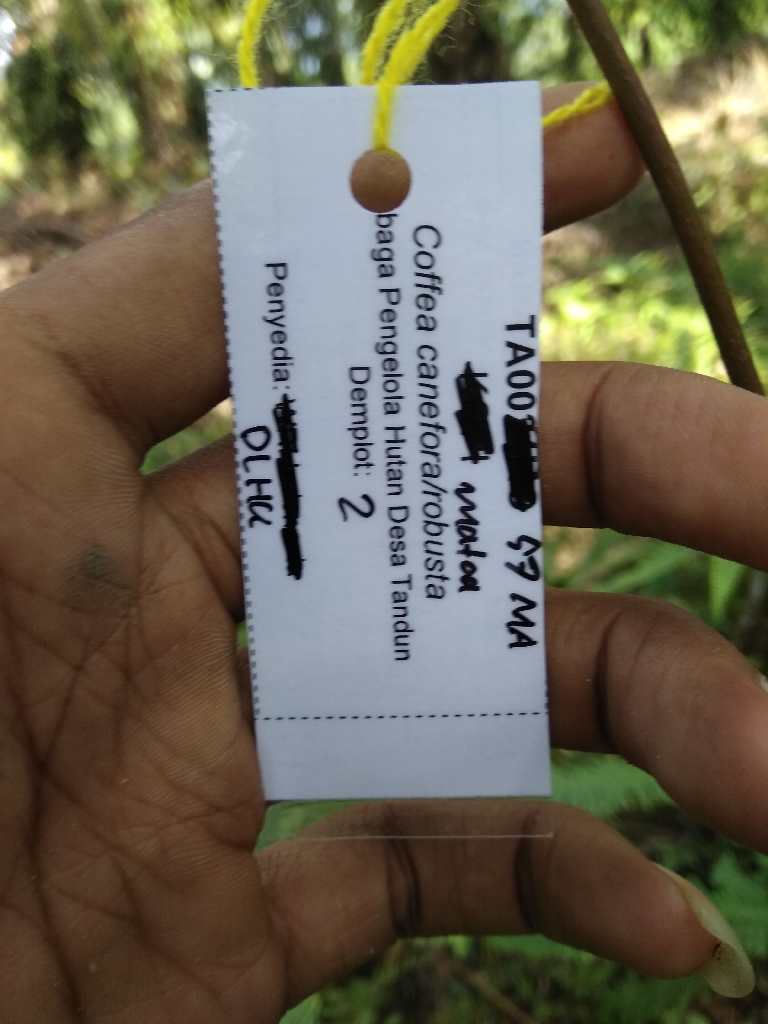 TA00 59 MA
matoa
Coffea canefora/robusta
baga Pengelola Hutan Desa Tandun
Demplot: 2
Penyedia:
DLHK